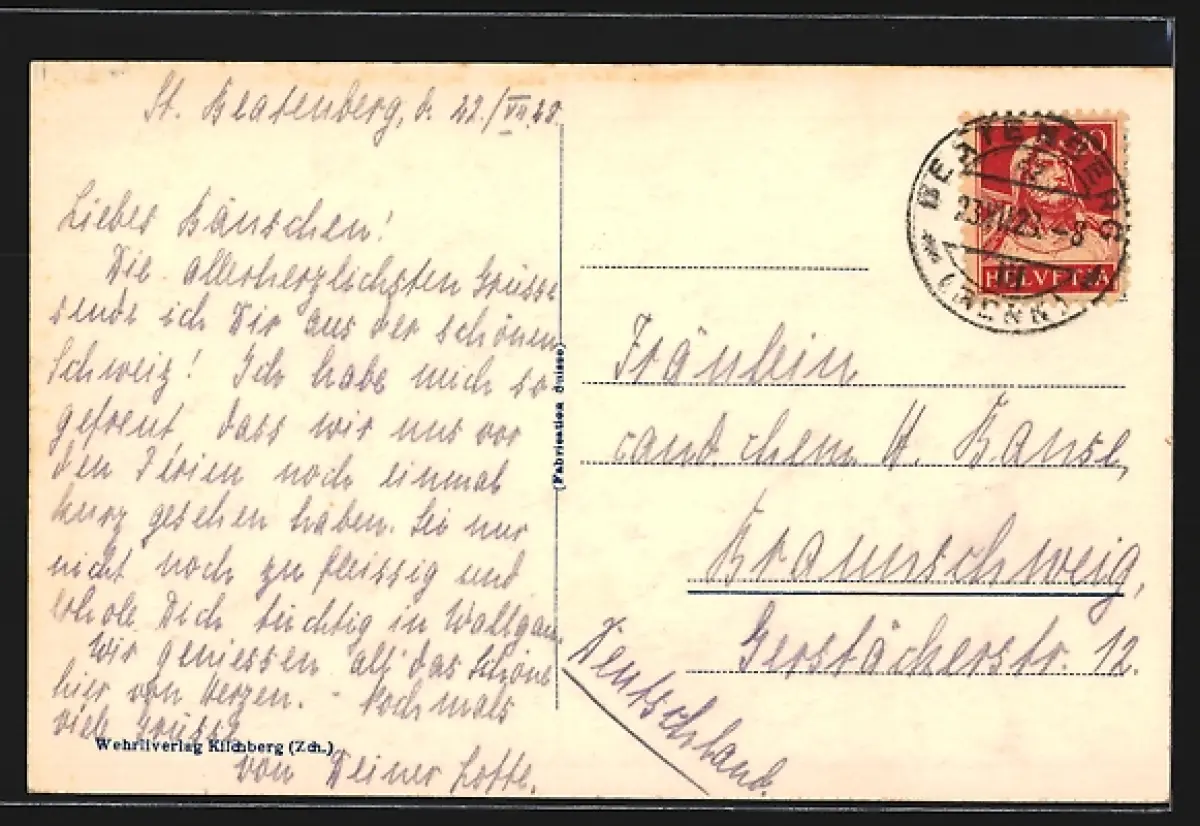 St. Beatenberg, d. 22./VII.28.
Liebes Bänschen!
Die allerherzlichsten Grüsse
sende ich Dir aus der schönen
Schweiz! Ich habe mich so
gefreut, dass wir uns vor
den Ferien noch einmal
kurz gesehen haben. Sei nur
nicht noch zu fleissig und
erhole Dich tüchtig in Wallgau.
Wir geniessen all' das Schöne
hier von Herzen. - Nochmals
viele Grüsse
von Deiner Lotte.
Wehrliverlag Kilchberg (Zch.)
(Fabrication Suisse)
BEATENBERG
23.VII.28. - 8
HELVETIA
Fräulein
cand. chem. H. Banse,
Braunschweig,
Gerstäckerstr. 12.
Deutschland.